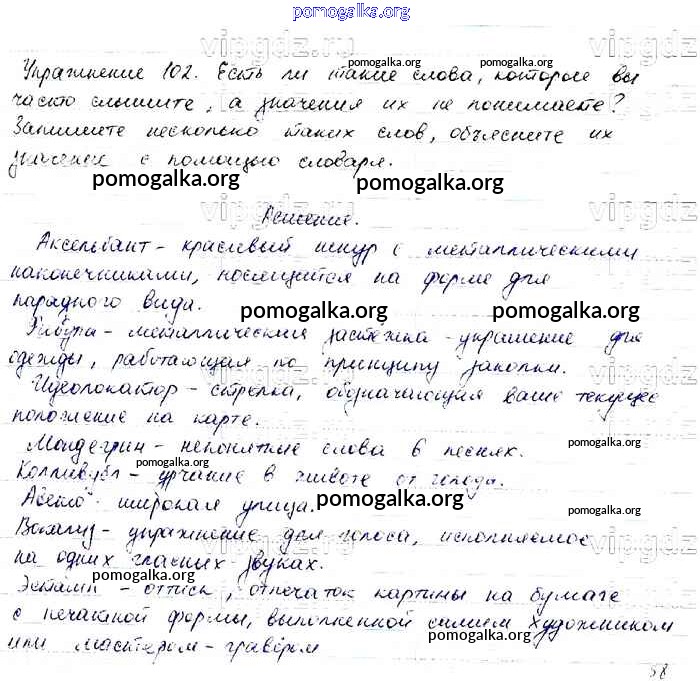 pomogalka.org
Упражнение 102. Есть ли такие слова, которые вы
часто слышите, а значения их не понимаете?
Запишите несколько таких слов, объясните их
значения с помощью словаря.
pomogalka.org
pomogalka.org
pomogalka.org
vipgdz
vipgdz
Решение.
Аксельбант - красивый шнур с металлическими
наконечниками, носящийся на форме для
парадного вида.
pomogalka.org
pomogalka.org
Фибула - металлическая застёжка - украшение для
одежды, работающая по принципу заколки.
Идеолокатор - стрелка, обозначающая ваше текущее
положение на карте.
pomogalka.org
Мондегрин - непонятные слова в песнях.
pomogalka.org
Колливубл - урчание в животе от голода.
pomogalka.org
широкая улица.
pomogalka.org
Вокализ - упражнение для голоса, исполняемое
на одних гласных звуках.
pomogalka.org
Эстамп - оттиск, отпечаток картины на бумаге
с печатной формы, выполненной самим художником
pomogalka.org
или мастером - гравёром
58